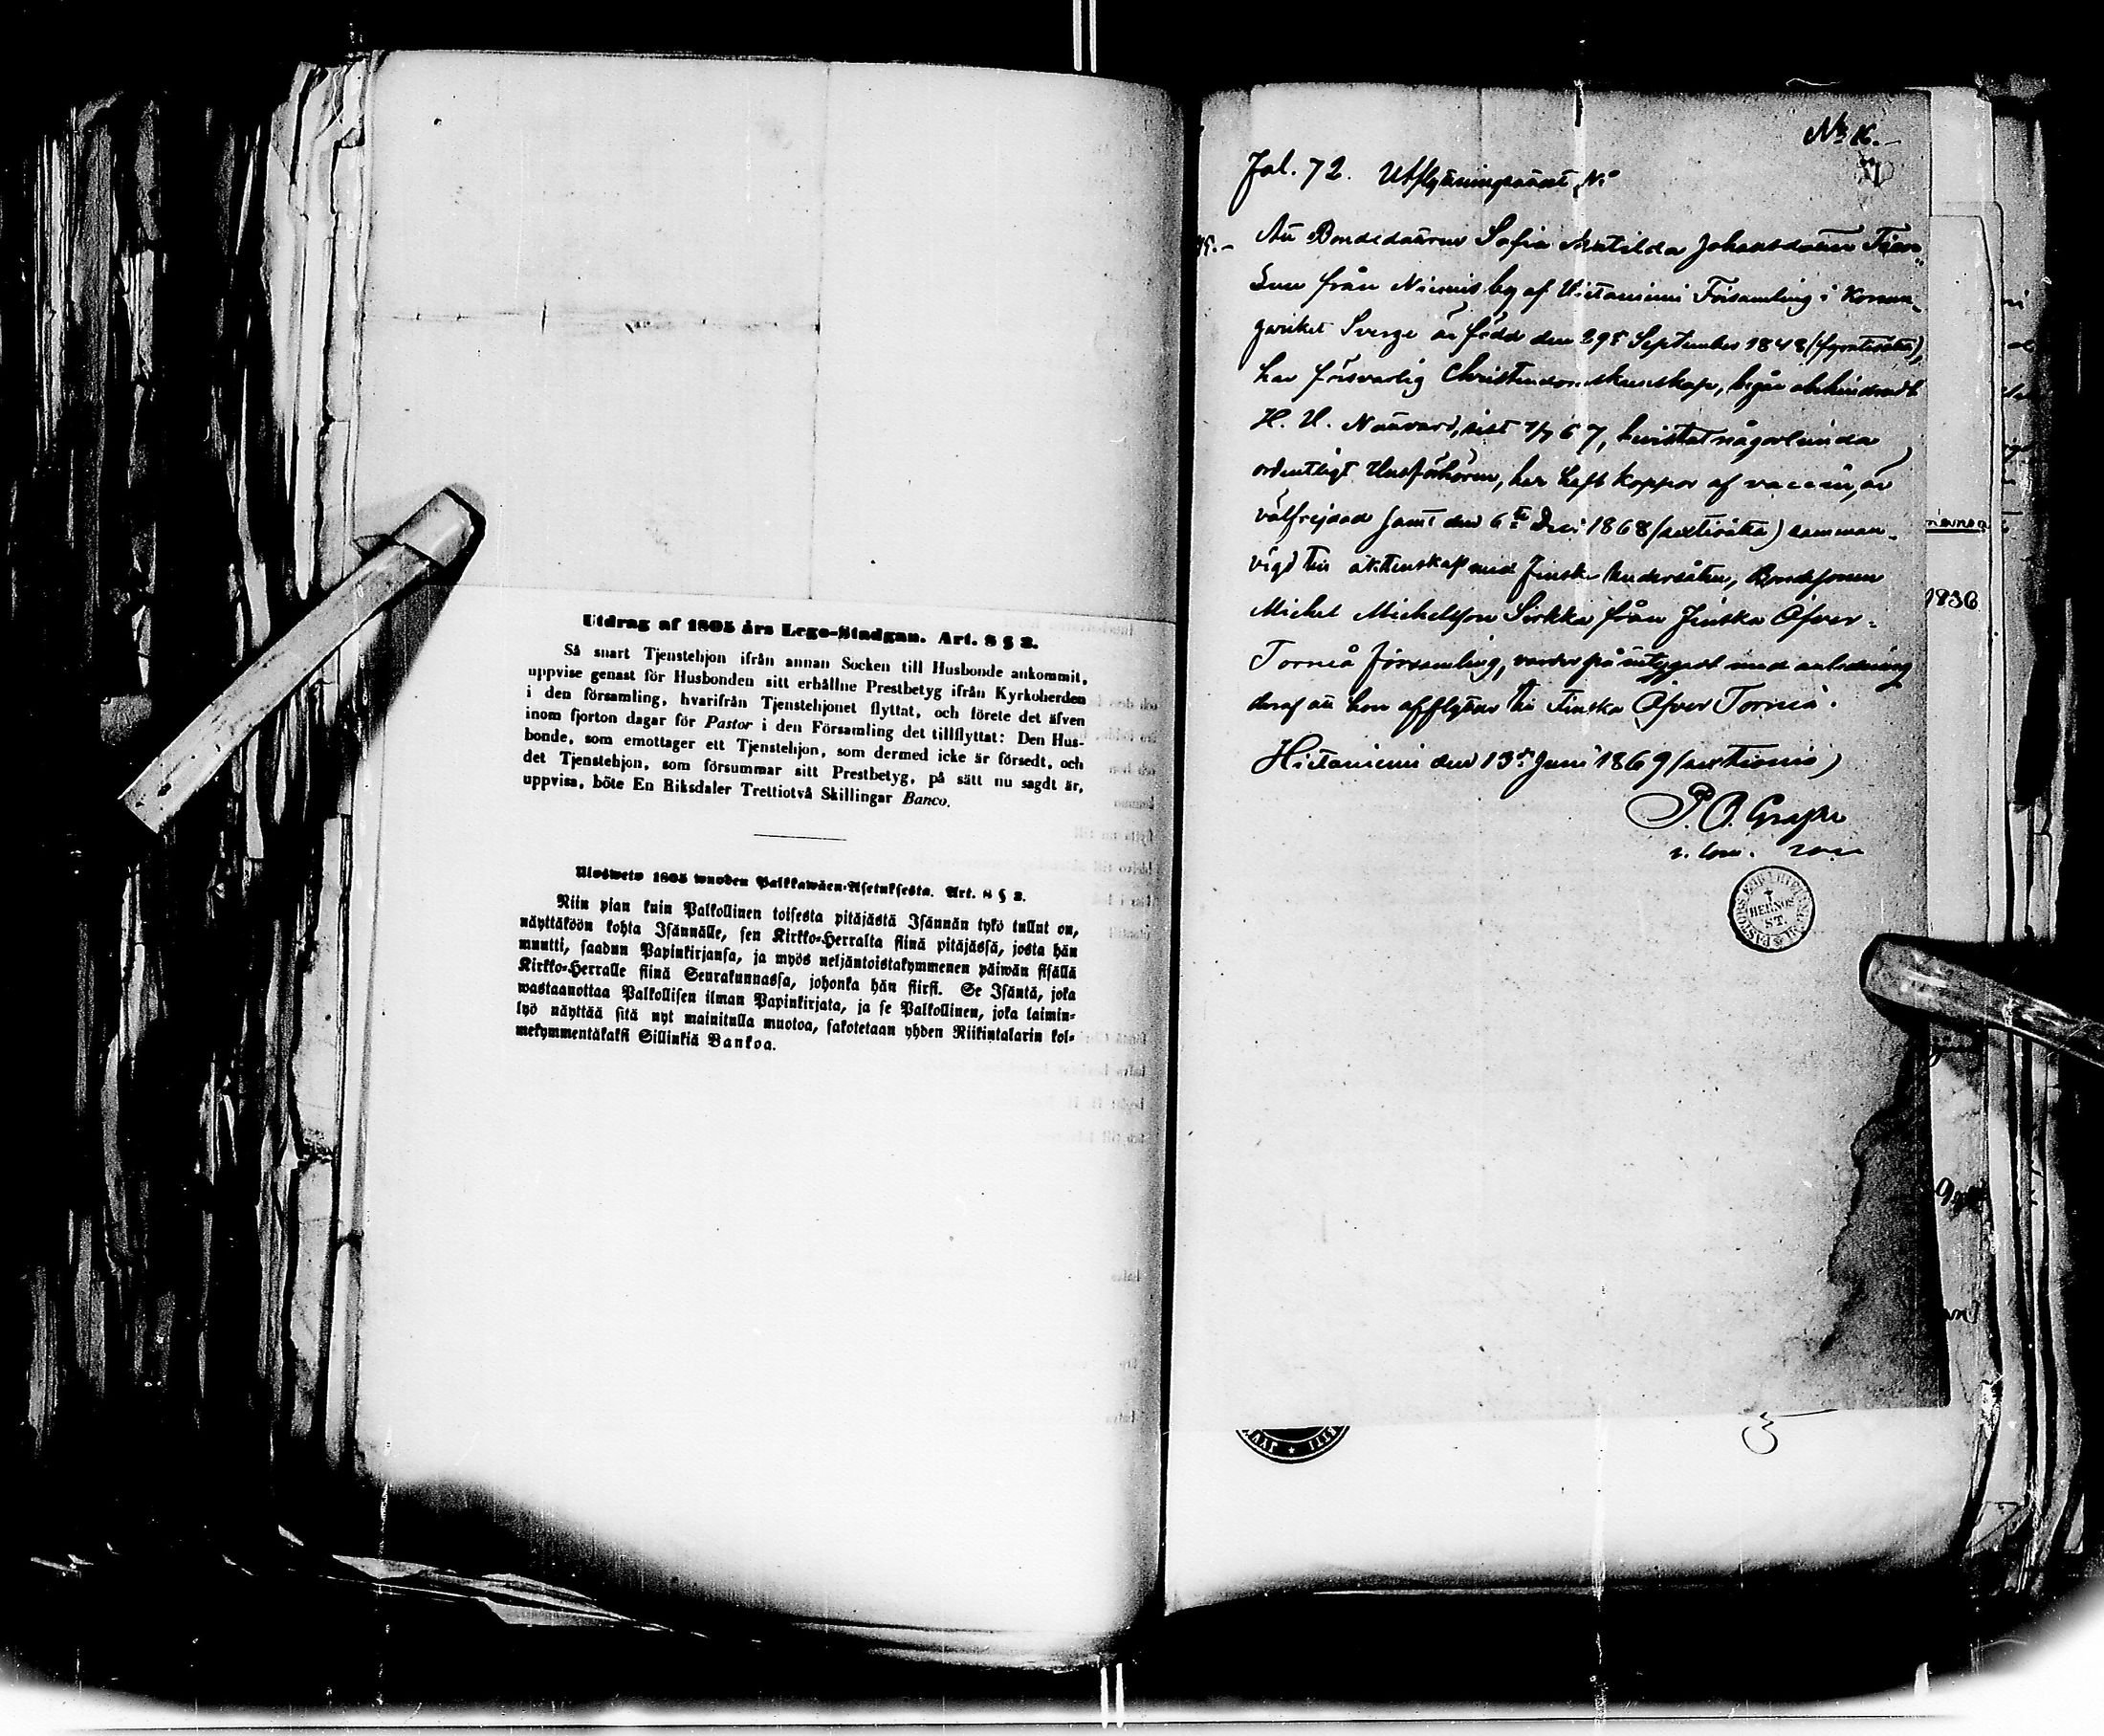 Utdrag af 1805 års Lego-Stadgan. Art. 8 § 2.
Så snart Tjenstehjon ifrån annan Socken till Husbonde ankommit,
uppvise genast för Husbonden sitt erhållne Prestbetyg ifrån Kyrkoherden
i den församling, hvarifrån Tjenstehjonet flyttat, och förete det äfven
inom fjorton dagar för Pastor i den Församling det tillflyttat: Den Hus-
bonde, som emottager ett Tjenstehjon, som dermed icke är försedt, och
det Tjenstehjon, som försummar sitt Prestbetyg, på sätt nu sagdt är,
uppvisa, böte En Riksdaler Trettiotvå Skillingar Banco.
Ulosweto 1805 wuoden Palkkawäen-Asetuksesta. Art. 8 § 2.
Niin pian kuin Palkollinen toisesta pitäjästä Isännän tykö tullut on,
näyttäköön kohta Isännälle, sen Kirkko-Herralta siinä pitäjässä, josta hän
muutti, saadun Papinkirjansa, ja myös neljäntoistakymmenen päiwän sisällä
Kirkko-Herralle siinä Seurakunnassa, johonka hän siirsi. Se Isäntä, joka
wastaanottaa Palkollisen ilman Papinkirjata, ja se Palkollinen, joka laimin-
lyö näyttää sitä nyt mainitulla muotoa, sakotetaan yhden Riikintalarin kol-
mekymmentäkaksi Sillinkiä Bankoa.
No 16.
Fol. 72. Utflyttningsattest No
Att Bondedottren Sofia Matilda Johansdotter
från Niemis by af Hietaniemi Församling i Konun-
gariket Sverge är född den 29de September 1848 (fyratioåtta),
har försvarlig Christendomskunskap, begår obehindradt
H. H. Nattvard, sist 1/7 67, bevistat någorlunda
ordentligt Husförhören, har haft koppor af vaccin, är
välfrejdad samt den 6te Dec. 1868 (sextioåtta) samman-
vigd till äktenskap med Finske Undersåten, Bondesonen
Michel Michelsson Sirkka från Finska Öfver-
Torneå församling, varder på intygadt med anledning
deraf att hon afflyttar till Finska Öfver Torneå.
Hietaniemi den 13de Juni 1869 (sextionio)
P. O. Grape
v. Com.
HERNÖS
ST.
1836